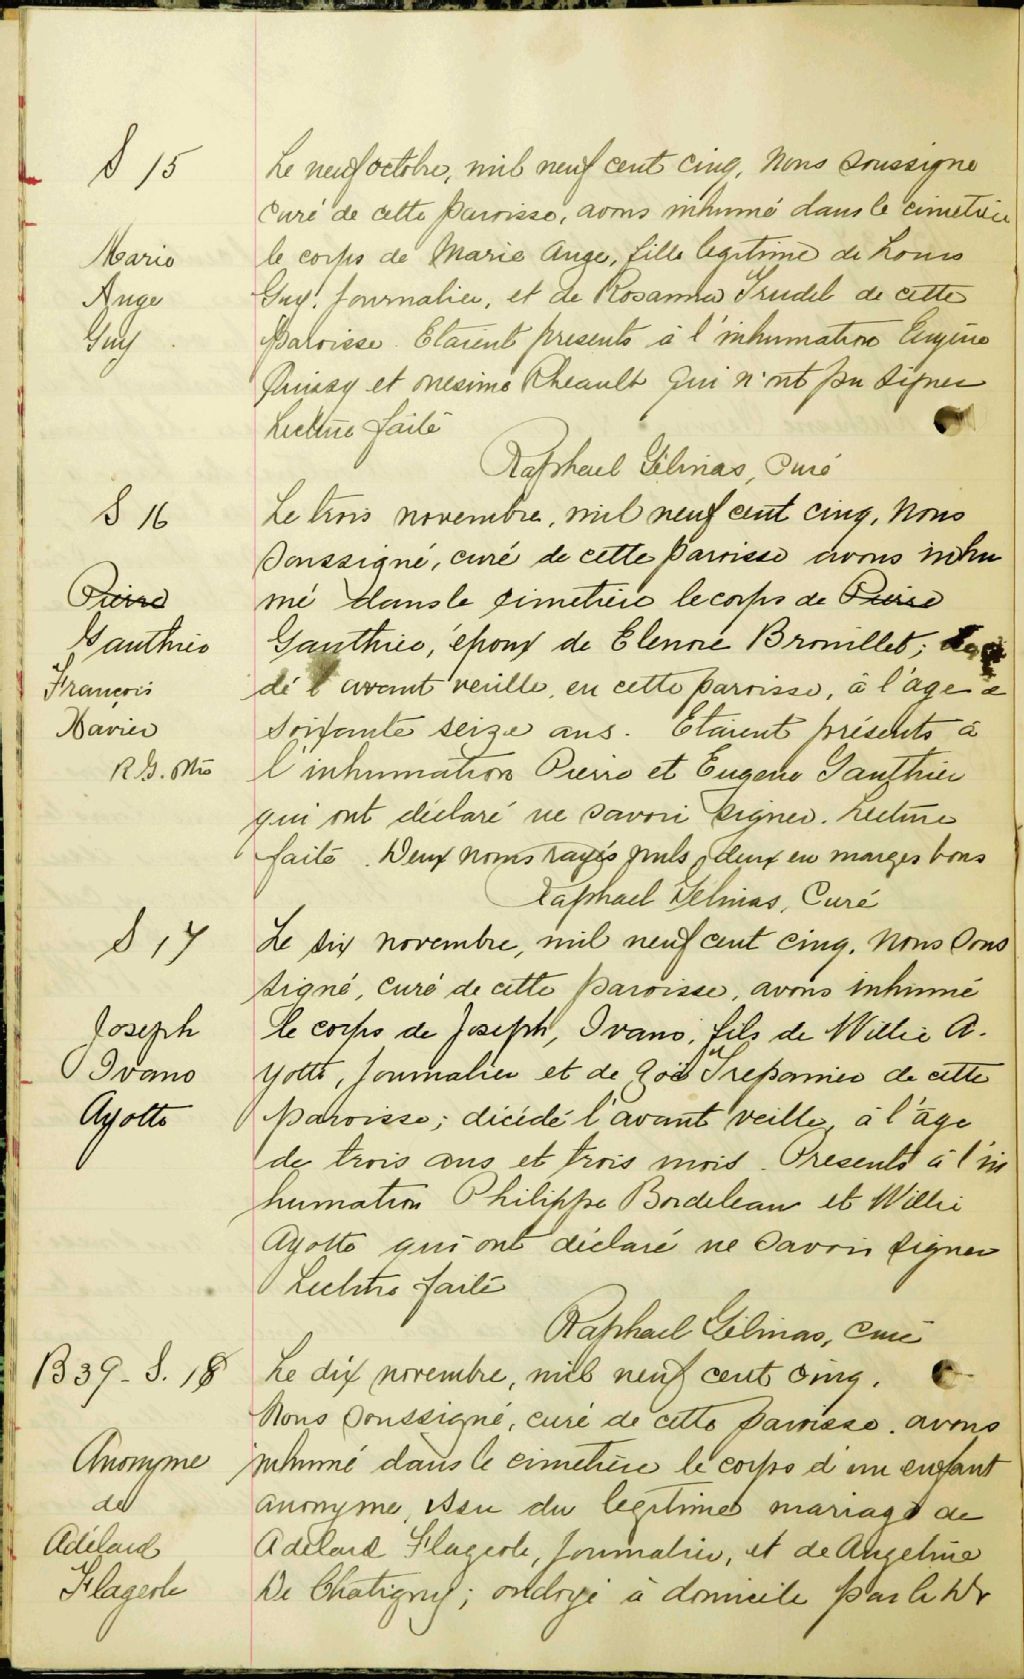 S 15
Le neuf octobre, mil neuf cent cinq, Nous soussigné
curé de cette paroisse, avons inhumé dans le cimetière
Marie
le corps de Marie Ange, fille legitime de Louis
Ange
Guy, journalier, et de Rosanna Trudel de cette
Guy
paroisse. Etaient presents à l'inhumation Eugène
Quissy et onesime Rheault qui n'ont pu signer
Lecture faite
Raphael Gélinas, Curé
S 16
Le trois novembre, mil neuf cent cinq, Nous
soussigné, curé de cette paroisse avons inhu
Pierre
mé dans le cimetière le corps de Pierre
Gauthier
Gauthier, époux de Elenore Brouillet;
François
dé l'avant veille, en cette paroisse, à l'age de
Xavier
soixante seize ans. Etaient présents à
R.G. ptre
l'inhumation Pierre et Eugene Gauthier
qui ont déclaré ne savoir signer. Lecture
faite. Deux noms rayés nuls, deux en marges bons
Raphael Gelinas, Curé
S 17
Le six novembre, mil neuf cent cinq, Nous sous
signé, curé de cette paroisse, avons inhumé
Joseph
le corps de Joseph, Ivano, fils de Willie A-
Ivano
yotte, journalier et de Zoé Trepanier de cette
Ayotte
paroisse; décédé l'avant veille, à l'âge
de trois ans et trois mois. Presents à l'in
humation Philippe Bordeleau et Willie
Ayotte qui ont déclaré ne savoir signer
Lecture faite
Raphael Gélinas, Curé
B 39 - S. 18
Le dix novembre, mil neuf cent cinq,
Nous soussigné, curé de cette paroisse, avons
Anonyme
inhumé dans le cimetière le corps d'un enfant
de
anonyme, issu du legitime mariage de
Adélard
Adélard Flageole, journalier, et de Angeline
Flageole
De Chatigny; ondoyé à domicile par le Dr